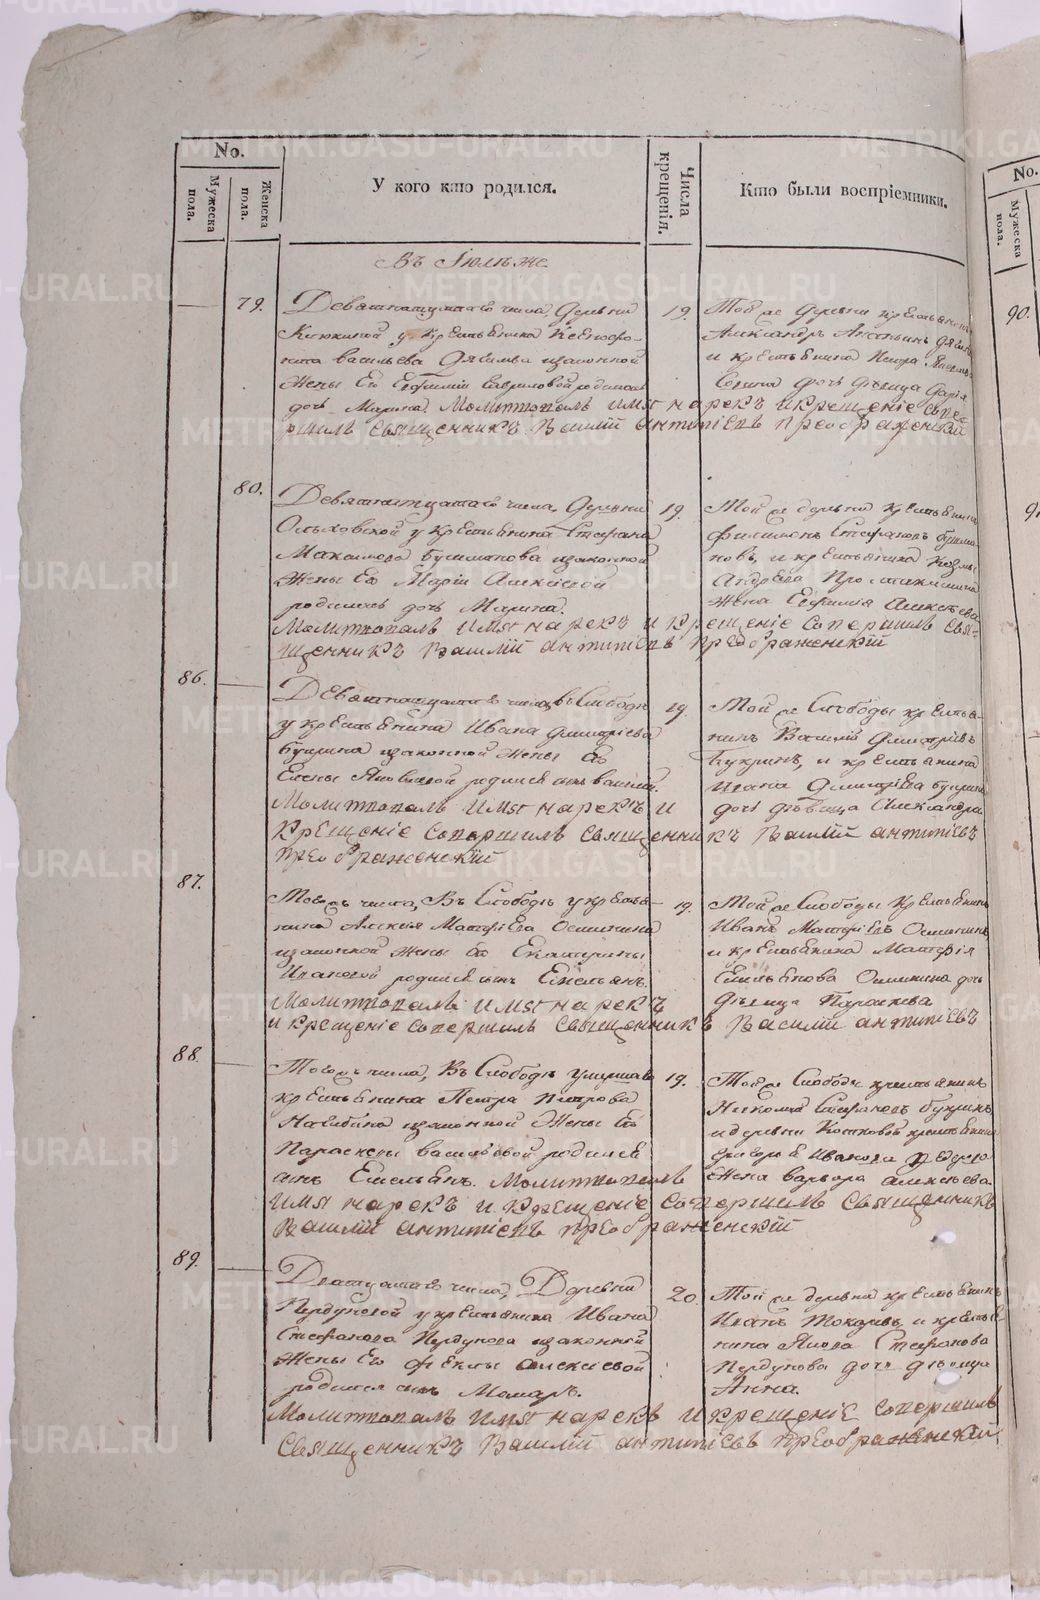 No.
Мужеска пола.
Женска пола.
У кого кто родился.
Числа крещенія.
Кто были воспріемники.
Въ Іюлѣ же
79.
Девятнатцатаго числа, Деревни
у крестьянина Ксенофо-
нта Васильева изаконной
жены Ево Евфиміи Гавриловой родилась
дочь Марина. Молитвовалъ имя нарекъ и крещеніе сове-
ршилъ священникъ Василій Антипіевъ Преображенскій
19.
Той же деревни крестьянинъ
Александръ
и крестьянина Петра
дочь дѣвица Дарія
80.
Девятнатцатаго числа, Деревни
Ольховской у крестьянина Стефана
Максимова изаконной
жены Ево Маріи Алексіевой
родилась дочь Марина.
Молитвовалъ имя нарекъ и крещеніе совершилъ свя-
щенникъ Василій Антипіевъ Преображенскій
19.
Той же деревни крестьянинъ
Филимонъ Стефановъ
новъ, и крестьянина Козмы
Андреева
жена Евфимія Алексѣева
86.
Девятнатцатаго числа, въ Слободѣ
у крестьянина Ивана Дмитріева
Букрина изаконной жены Ево
Елены Яковлевой родился сынъ Василій.
Молитвовалъ имя нарекъ и
крещеніе совершилъ священникъ Василій Антипіевъ
Преображенскій
19.
Той же Слободы крестья-
нинъ Василій Дмитріевъ
Букринъ, и крестьянина
Ивана Дмитріева Букрина
дочь дѣвица Александра
87.
Тогожъ числа, Въ Слободѣ у кресть-
янина Алексія Матфіева Осинкина
изаконной жены Ево Екатерины
Ивановой родился сынъ Емельянъ.
Молитвовалъ имя нарекъ
и крещеніе совершилъ священникъ Василій Антипіевъ
19.
Той же Слободы крестьянинъ
Иванъ Матфіевъ Осинкинъ
и крестьянина Матфія
Емельянова Осинкина дочь
дѣвица Параскева
88.
Тогожъ числа, Въ Слободѣ умершаго
крестьянина Петра Петрова
изаконной жены Ево
Параскевы Васильевой родился
сынъ Емельянъ. Молитвовалъ
имя нарекъ и крещеніе совершилъ священникъ
Василій Антипіевъ Преображенскій
19.
Той же Слободы крестьянинъ
Николай Стефановъ Букринъ
и деревни крестьянина
Григорья Иванова
жена Варвара Алексѣева
89.
Дватцатаго числа, Деревни
Пердуновой у крестьянина Ивана
Стефанова Пердунова изаконной
жены Ево Феклы Алексіевой
родился сынъ Макаръ.
Молитвовалъ имя нарекъ и крещеніе совершилъ
священникъ Василій Антипіевъ Преображенскій
20.
Той же деревни крестьянинъ
Иванъ Токаревъ, и крестья-
нина Якова Стефанова
Пердунова дочь дѣвица
Анна.
No.
Мужеска пола.
90.
METRIKI.GASO-URAL.RU